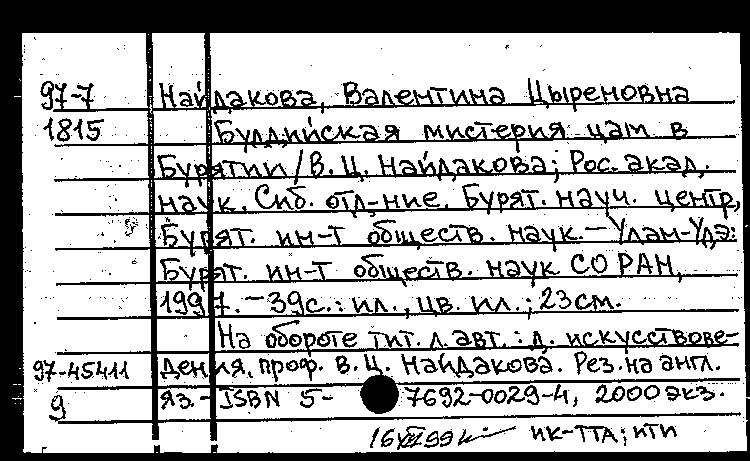 97-7 Найдакова, Валентина Цыреновна
1815 Буддийская мистерия цам в
Бурятии / В. Ц. Найдакова; Рос. акад.
наук. Сиб. отд-ние. Бурят. науч. центр,
Бурят. ин-т обществ. наук. — Улан-Удэ:
Бурят. ин-т обществ. наук СО РАН,
1997. — 39с.: ил., цв. ил.; 23см.
На обороте тит. л. авт.: д. искусствове-
97-45411 дения, проф. В. Ц. Найдакова. Рез. на англ.
9 яз. — ISBN 5- 7692-0029-4, 2000 экз.
ИК-ТТА; ИТИ